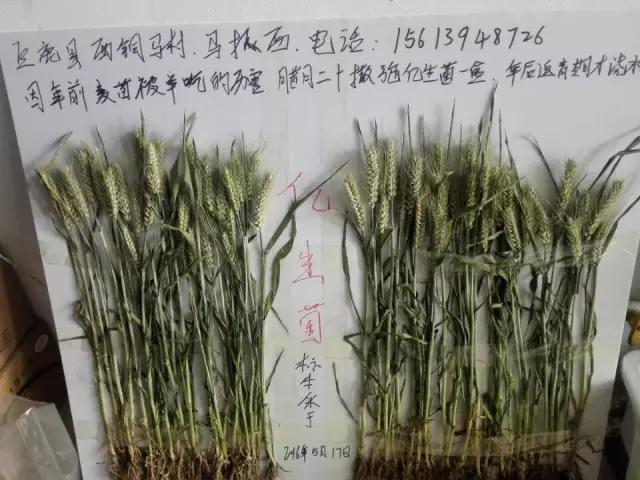 巨鹿县西铜马村.马振西.电话:15613948726
因年前麦苗被羊吃的厉害 腊月二十撒强亿生菌一盒.年后返青期才浇水
亿生菌
标本采于
2016年5月17日